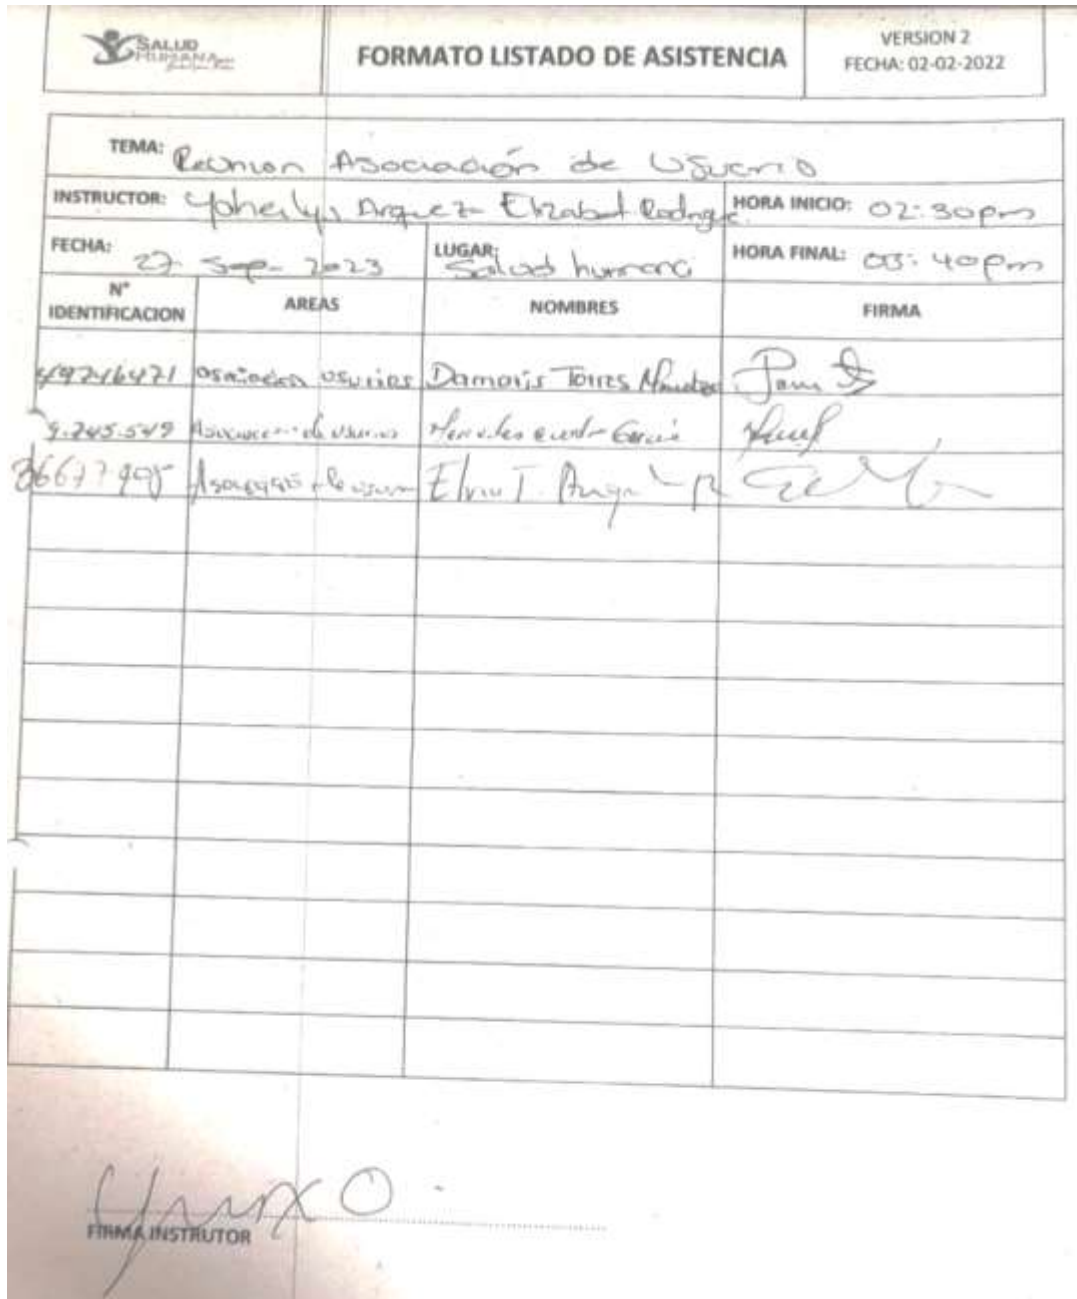 SALUD HUMANA
FORMATO LISTADO DE ASISTENCIA
VERSION 2
FECHA: 02-02-2022
TEMA: Reunion Asociación de Usuario
INSTRUCTOR: Yoheilys Arquez Elizabet Rodrigue
HORA INICIO: 02:30pm
FECHA: 27 Sep- 2023
LUGAR: Salud humana
HORA FINAL: 03:40pm
N° IDENTIFICACION AREAS NOMBRES FIRMA
asociacion usuarios Damaris Torres
9.245.549 Asociacion de usuarios Garcia
Asociacion de
FIRMA INSTRUTOR